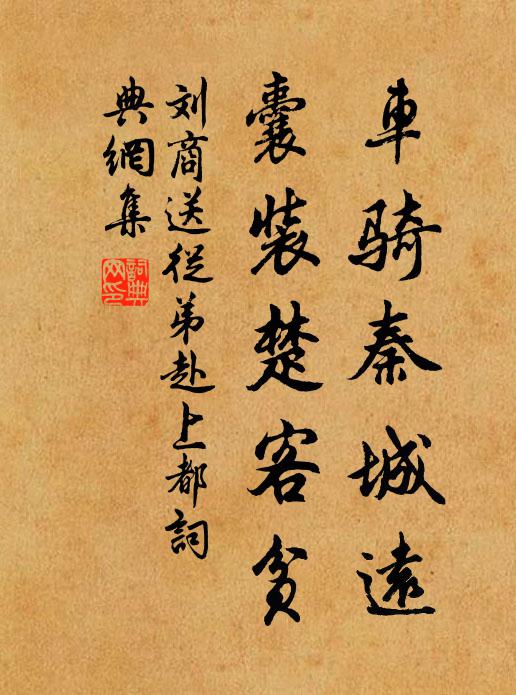 車骑秦城遠
囊裝楚客貧
刘商送從弟赴上都詞
典網集
詞典
网印